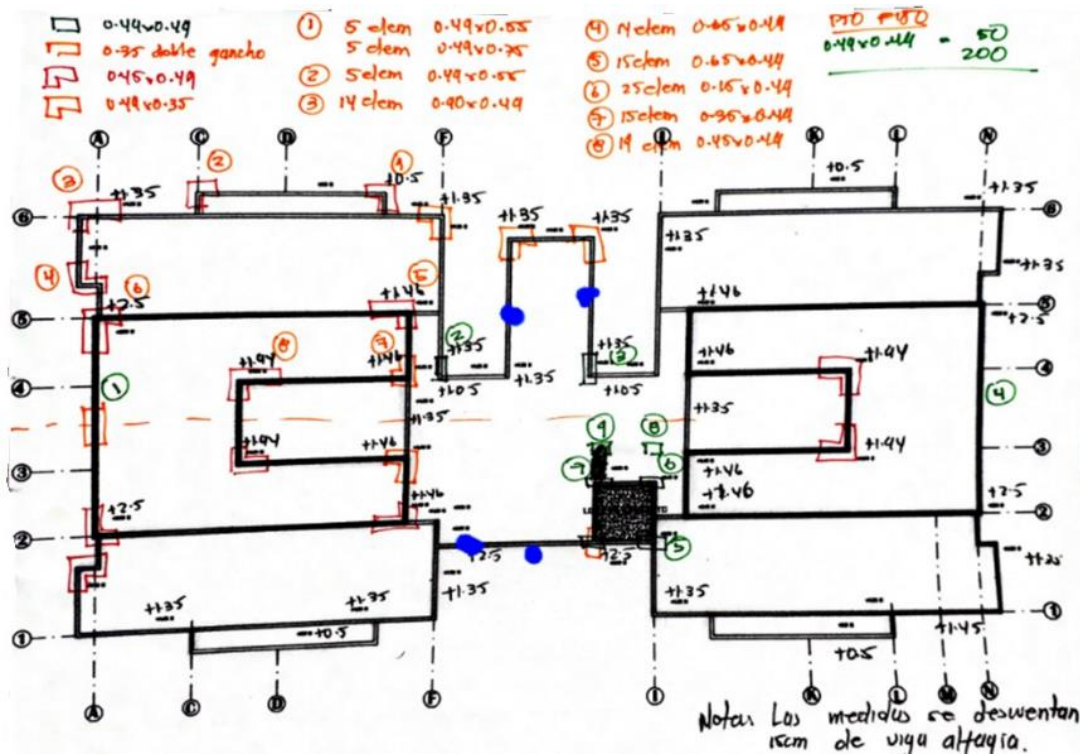 0.49x0.49
0.35 doble gancho
0.45x0.49
0.49x0.35
① 5 elem 0.49x0.55
5 elem 0.49x0.35
② 5 elem 0.49x0.55
③ 14 elem 0.90x0.49
④ 14 elem 0.65x0.49
⑤ 15 elem 0.65x0.49
⑥ 25 elem 0.15x0.49
⑦ 15 elem 0.35x0.49
⑧ 14 elem 0.45x0.49
0.49x0.49 = 50
200
A C D F I K L N
③ +1.35 ② ① +0.5 +1.35 +1.35 +1.35 +0.5 +1.35
⑥ +1.35 ⑥
④ ⑤ +1.35
⑥ +2.5 +1.46 +1.46 ⑤
⑤ +2.5
② +1.35 +1.35 ③
⑧ ⑦ +1.94 +1.46 +1.46 +1.94 ④
④ ① +1.05 +1.35 +1.05 ④
+1.35 +1.35
+1.94 +1.46 ⑨ ⑧ +1.94 ③
③ ⑦ ⑥ +1.46
+1.46 +1.46
+2.5 +2.5 ②
② +2.5 +2.5 ⑤
+1.35 +1.35 +1.35 +1.35
① +0.5 +1.45 ①
+0.5
A C D F I K L M N
Nota: Las medidas se descuentan
15cm de viga